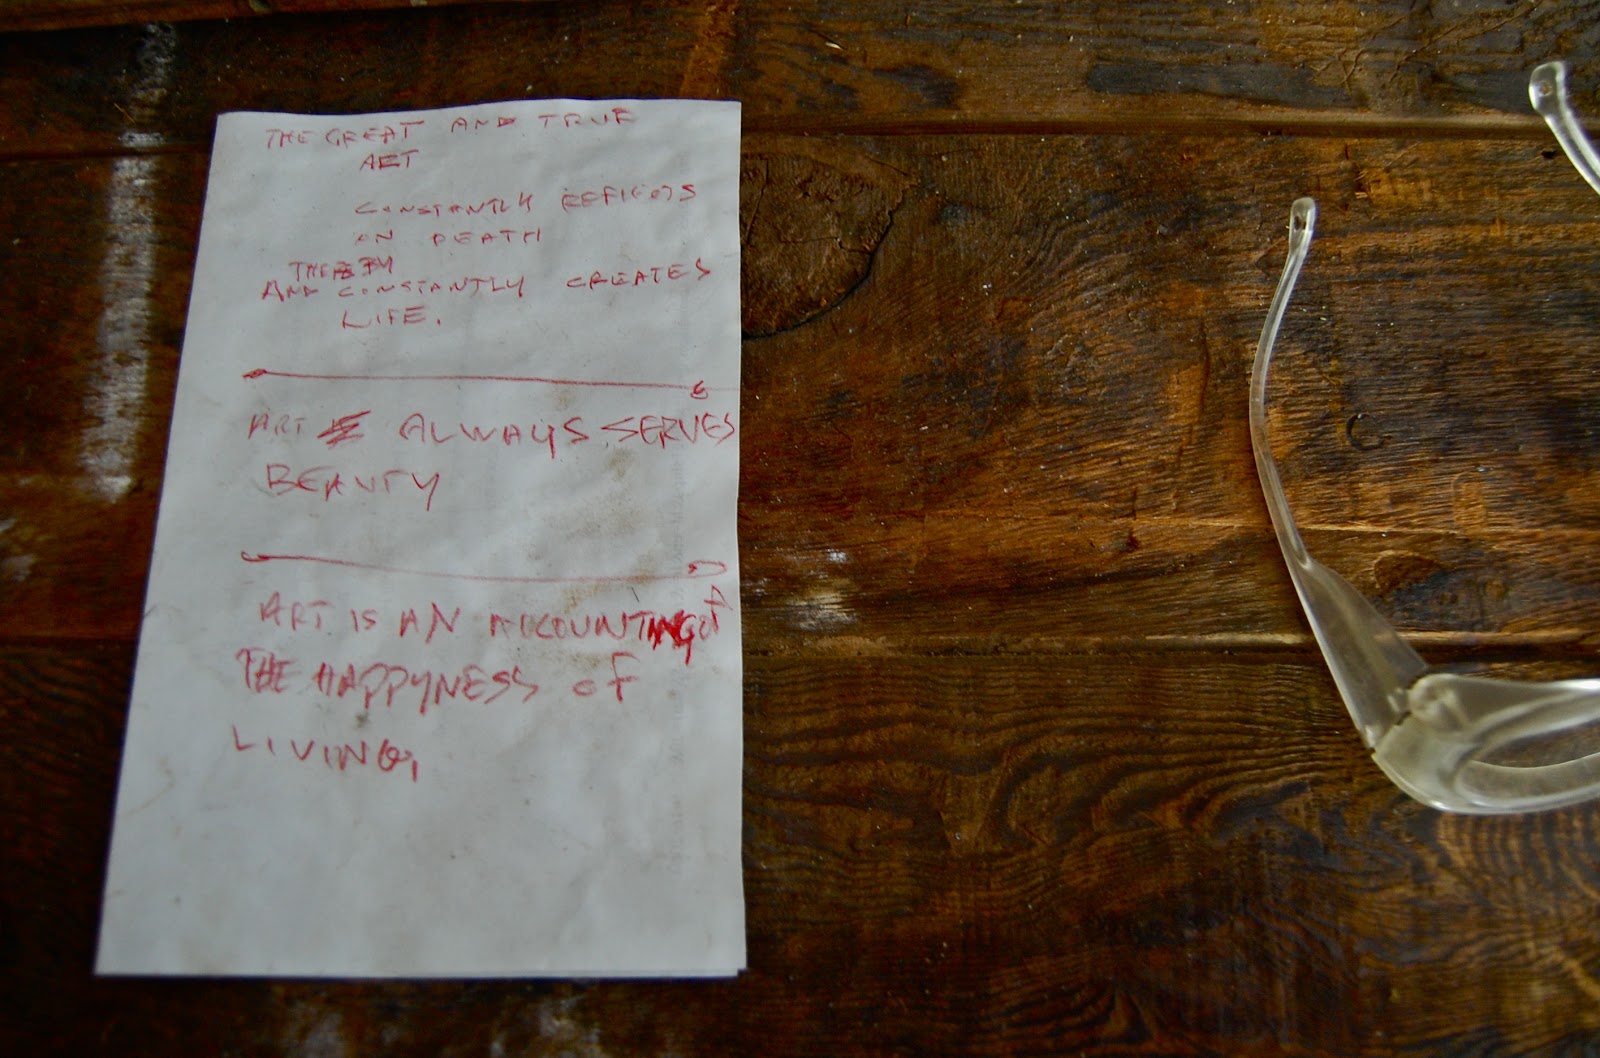 THE GREAT AND TRUE
ART
CONSTANTLY REFLECTS
ON DEATH
THEREBY
AND CONSTANTLY CREATES
LIFE.
ART ALWAYS SERVES
BEAUTY
ART IS AN ACCOUNTING OF
THE HAPPYNESS OF
LIVING,